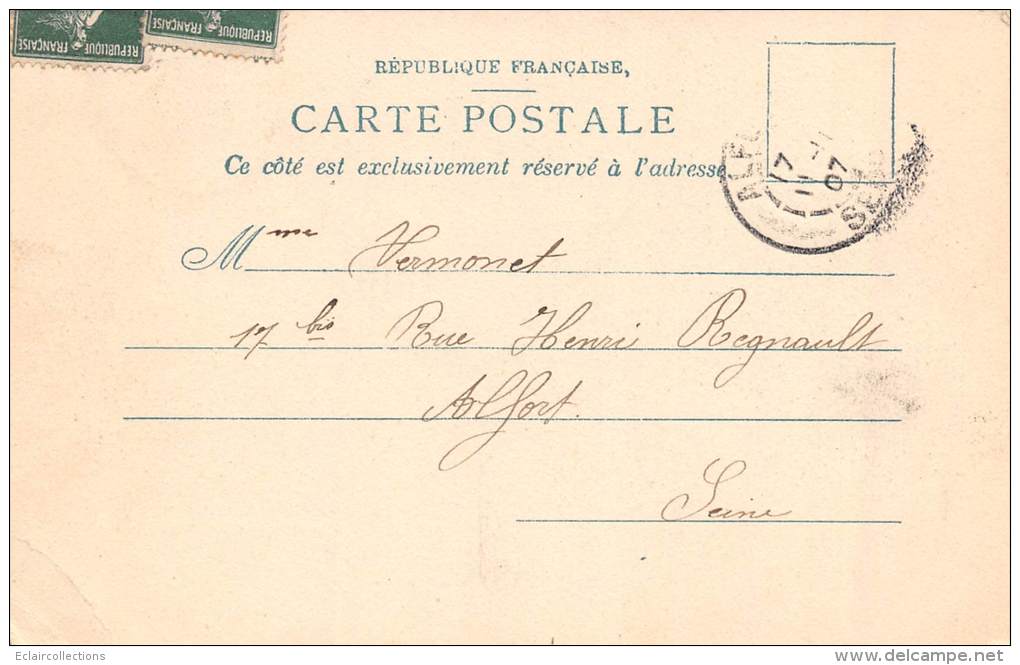 RÉPUBLIQUE FRANÇAISE
RÉPUBLIQUE FRANÇAISE
RÉPUBLIQUE FRANÇAISE,
CARTE POSTALE
Ce côté est exclusivement réservé à l'adresse
17
07
Mme Vermonet
17 bis Rue Henri Regnault
Alfort.
Seine
Eclaircollections
www.delcampe.net